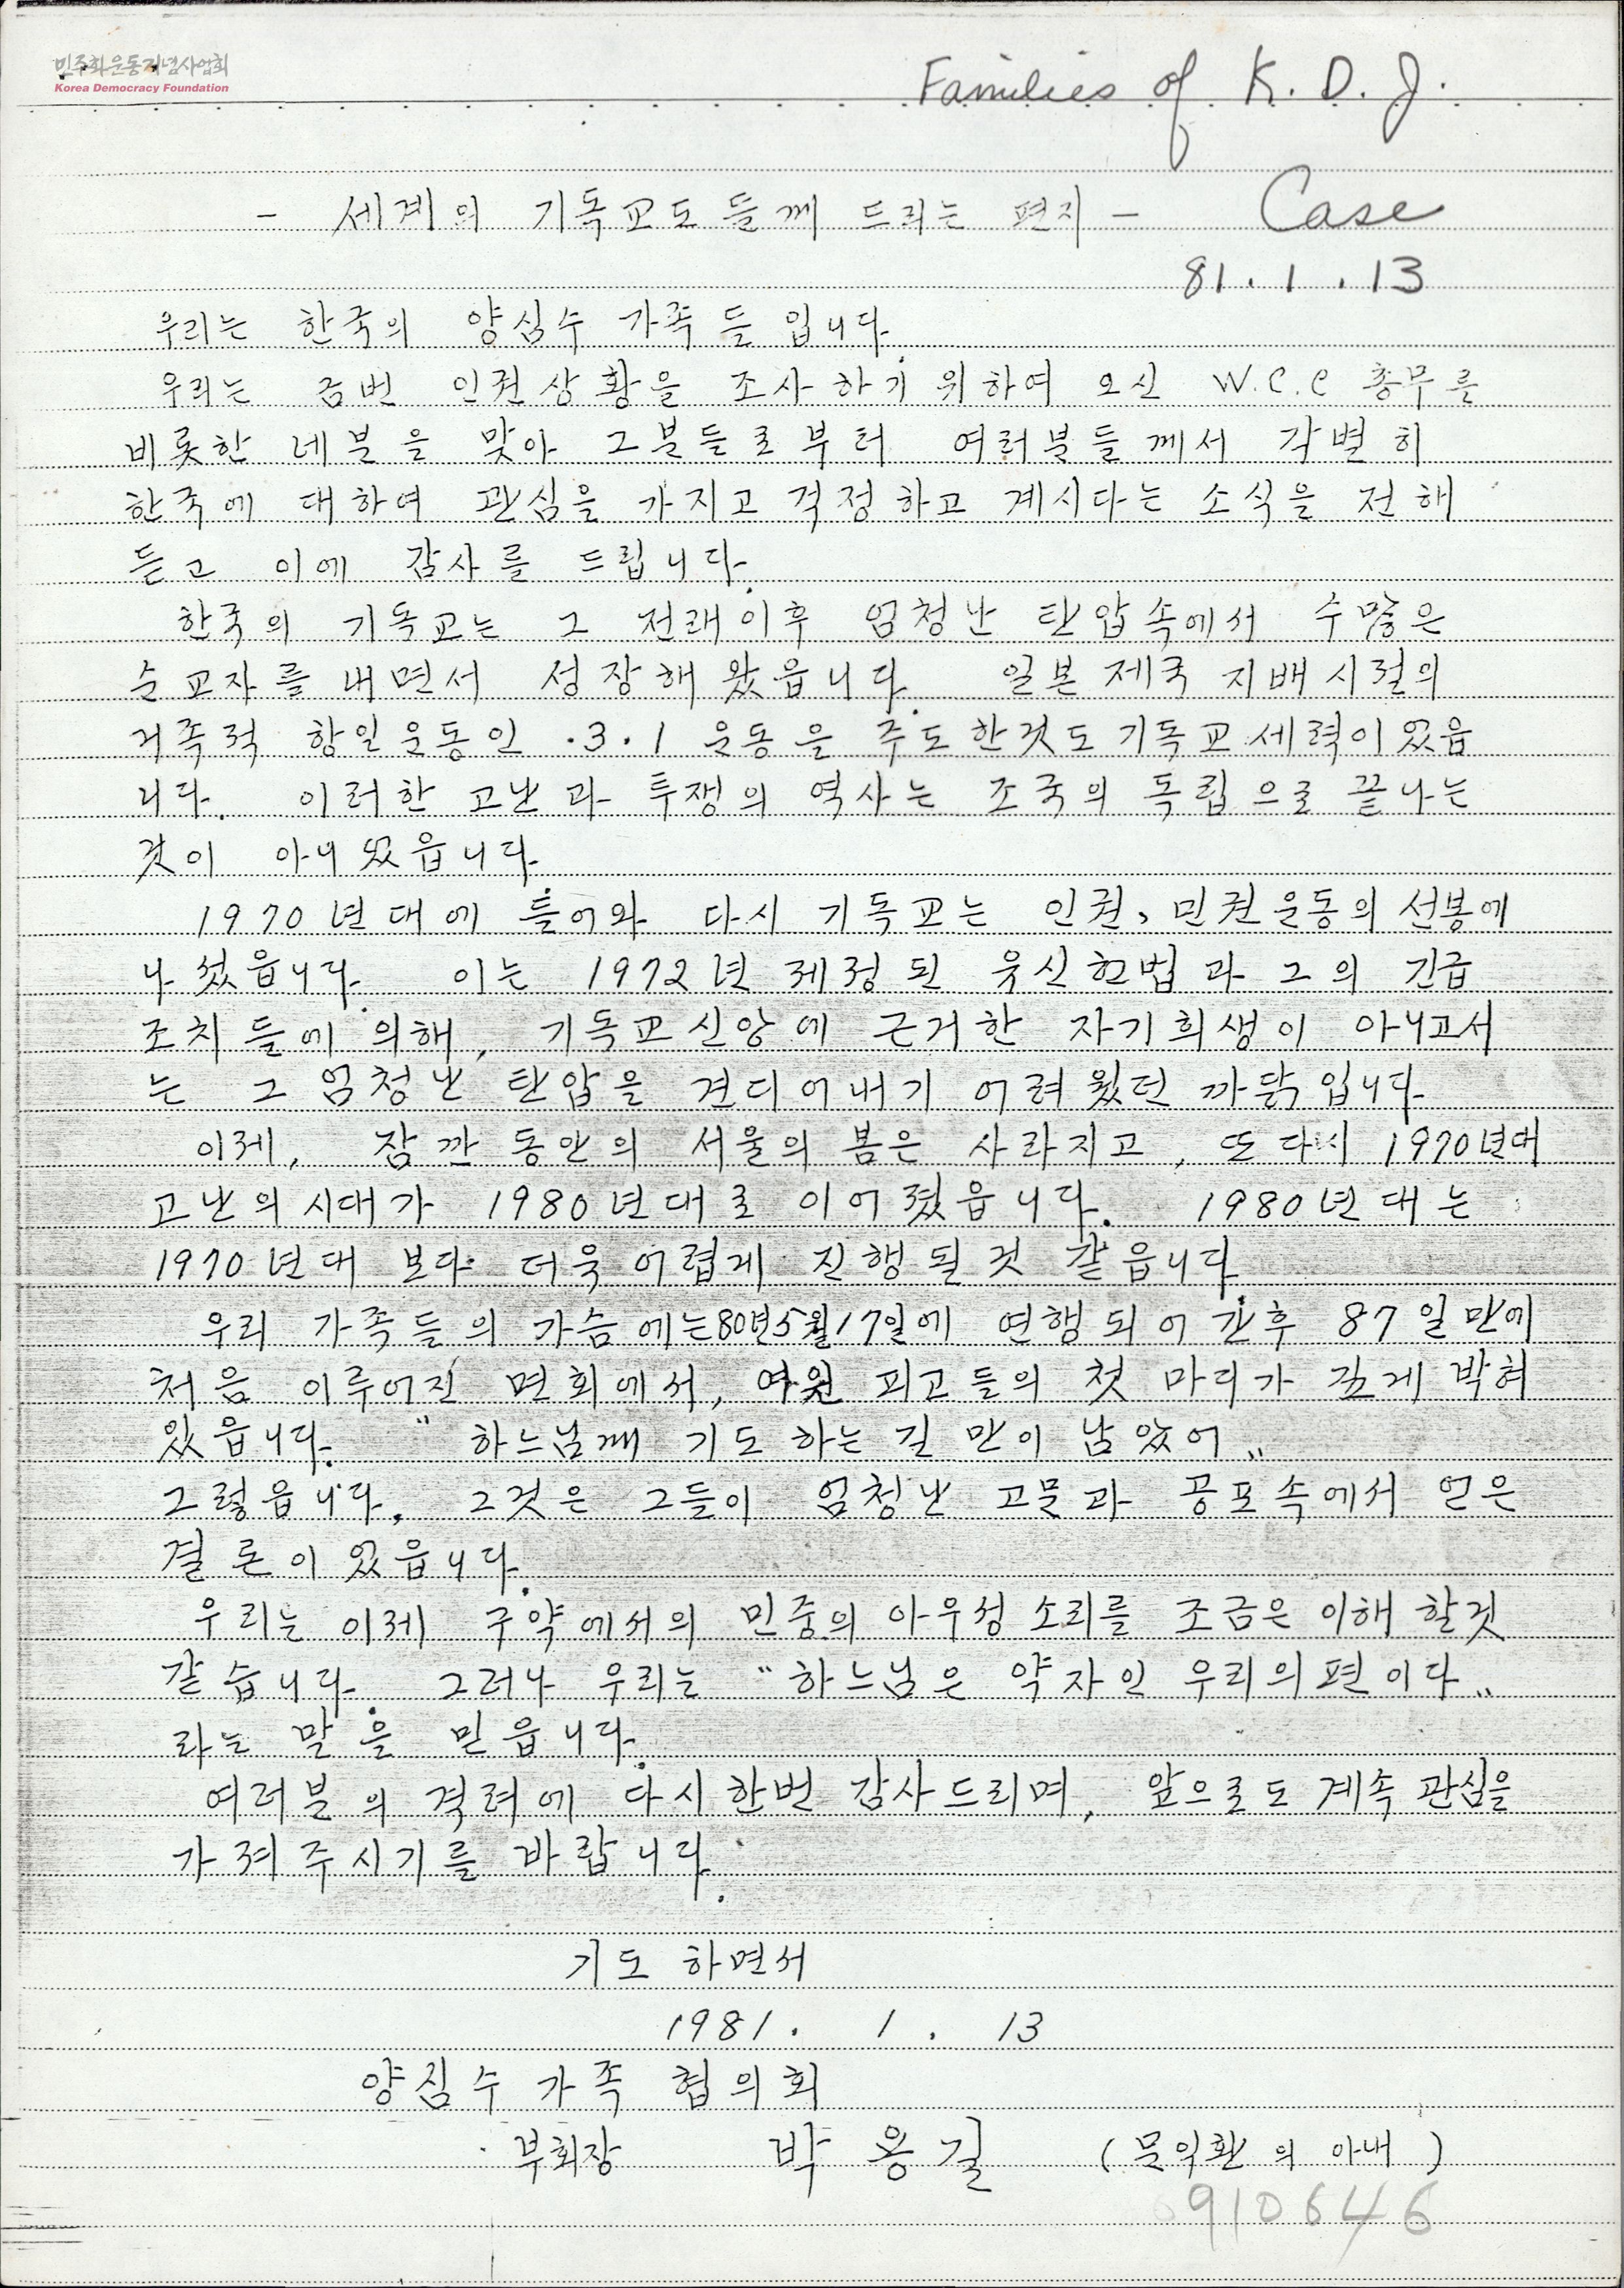 민주화운동기념사업회
Korea Democracy Foundation
Families of K. D. J.
Case
81. 1. 13
- 세계의 기독교도들께 드리는 편지 -
우리는 한국의 양심수 가족들입니다.
우리는 금번 인권상황을 조사하기 위하여 오신 W.C.C 총무를
비롯한 네분을 맞아 그분들로부터 여러분들께서 각별히
한국에 대하여 관심을 가지고 걱정하고 계시다는 소식을 전해
듣고 이에 감사를 드립니다.
한국의 기독교는 그 전래이후 엄청난 탄압속에서 수많은
순교자를 내면서 성장해 왔읍니다. 일본제국 지배시절의
거족적 항일운동인 .3.1 운동을 주도한것도 기독교세력이었읍
니다. 이러한 고난과 투쟁의 역사는 조국의 독립으로 끝나는
것이 아니었읍니다.
1970년대에 들어와 다시 기독교는 인권, 민권운동의 선봉에
나섰읍니다. 이는 1972년 제정된 유신헌법과 그의 긴급
조치들에 의해, 기독교신앙에 근거한 자기희생이 아니고서
는 그 엄청난 탄압을 견디어내기 어려웠던 까닭입니다.
이제, 잠깐 동안의 서울의 봄은 사라지고, 또 다시 1970년대
고난의 시대가 1980년대로 이어졌읍니다. 1980년대는
1970년대 보다 더욱 어렵게 진행될 것 같읍니다.
우리 가족들의 가슴에는 80년 5월 17일에 연행되어 간후 87일만에
처음 이루어진 면회에서, 여윈 피고들의 첫 마디가 깊게 박혀
있읍니다. "하느님께 기도하는 길만이 남았어"
그렇읍니다. 그것은 그들이 엄청난 고문과 공포속에서 얻은
결론이었읍니다.
우리는 이제 구약에서의 민중의 아우성 소리를 조금은 이해 할것
같습니다. 그러나 우리는 "하느님은 약자인 우리의 편이다"
라는 말을 믿읍니다.
여러분의 격려에 다시한번 감사드리며, 앞으로도 계속 관심을
가져주시기를 바랍니다.
기도하면서
1981. 1. 13
양심수가족 협의회
부회장 박용길 (문익환의 아내)
910646